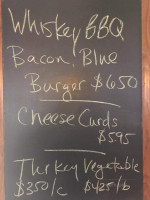 Whiskey BBQ
Bacon, Blue
Burger $650
Cheese Curds
$595
Turkey Vegetable
$350/c $425/b